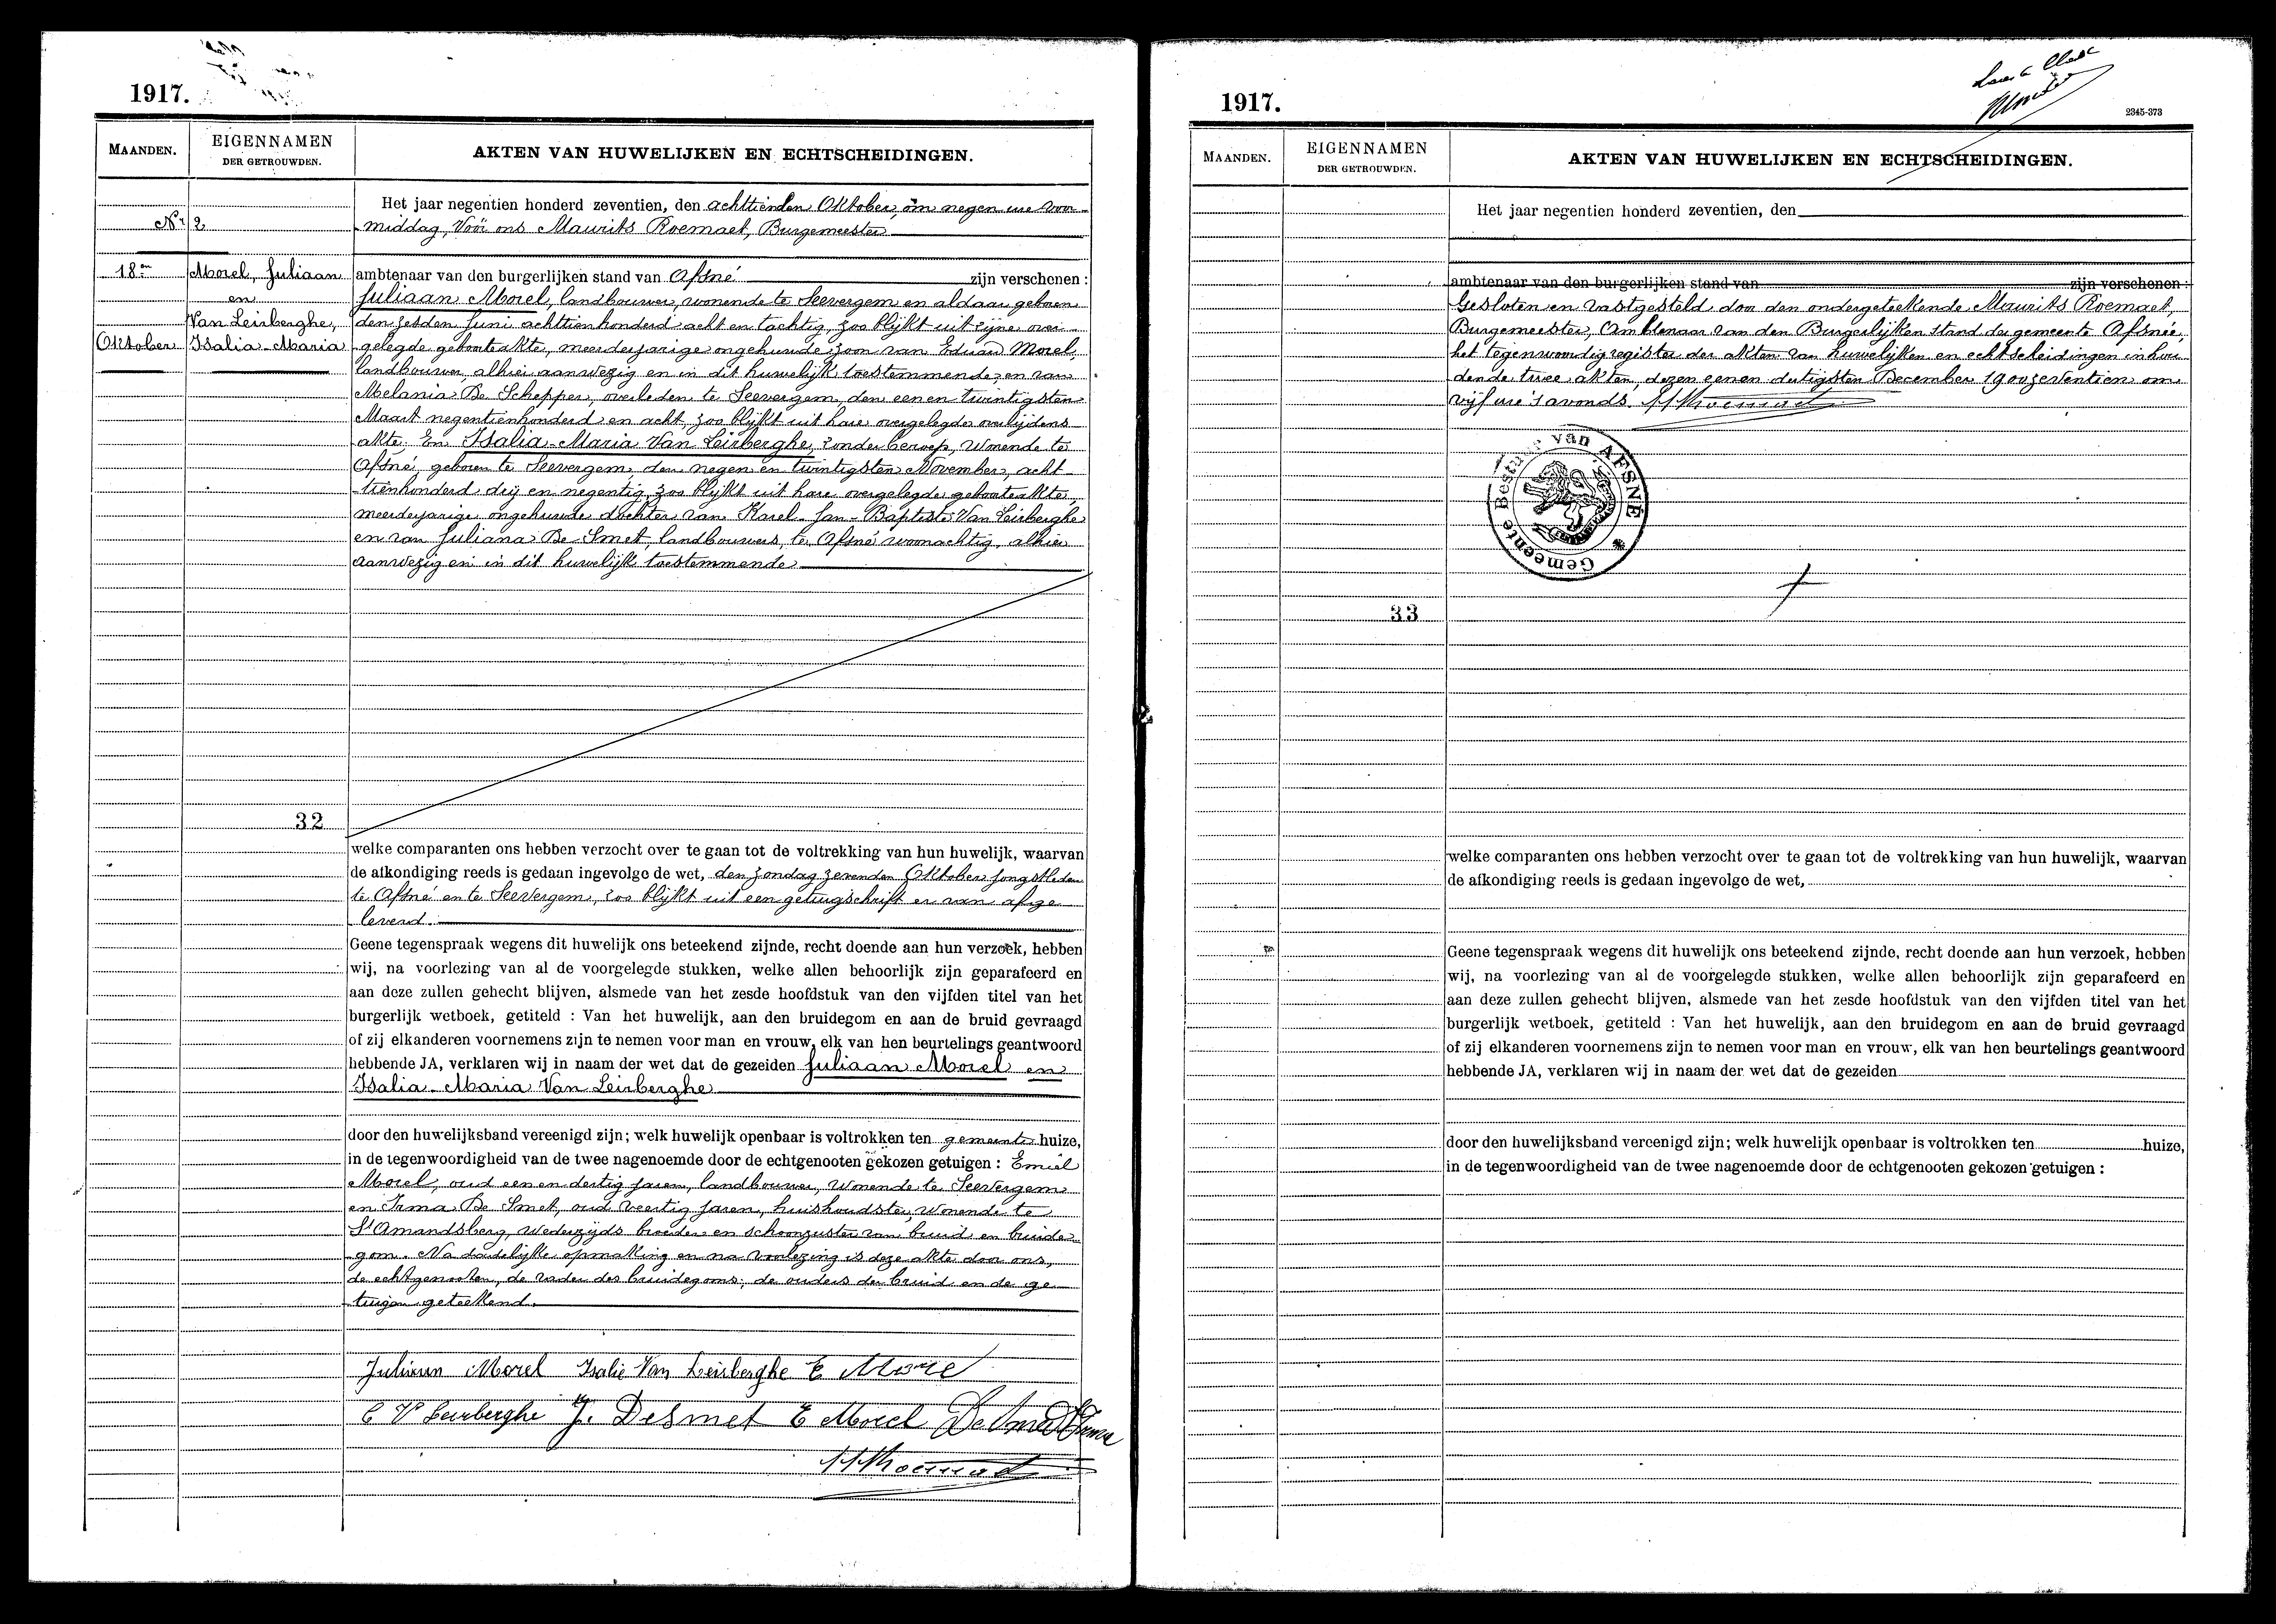 1917.
MAANDEN.
EIGENNAMEN
DER GETROUWDEN.
AKTEN VAN HUWELIJKEN EN ECHTSCHEIDINGEN.
Nr 2
18en
Oktober
Morel, Juliaan
en
Van Leirberghe,
Isalia-Maria
Het jaar negentien honderd zeventien, den achttienden Oktober, om negen ure voor-
middag, Vóór ons Maurits Roemaet, Burgemeester
ambtenaar van den burgerlijken stand van Afsné zijn verschenen :
Juliaan Morel, landbouwer, wonende te Seevergem en aldaar geboren
den zesden Juni achttienhonderd acht en tachtig, zoo blijkt uit zijne over-
gelegde geboorteakte, meerderjarige ongehuwde zoon van Eduard Morel,
landbouwer, alhier aanwezig en in dit huwelijk toestemmende en van
Melania De Schepper, overleden te Seevergem, den een en twintigsten
Maart negentienhonderd en acht, zoo blijkt uit hare overgelegde overlijdens
akte. En Isalia-Maria Van Leirberghe, zonder beroep, wonende te
Afsné, geboren te Seevergem, den negen en twintigsten November, acht
tienhonderd drij en negentig, zoo blijkt uit hare overgelegde geboorteakte,
meerderjarige ongehuwde dochter van Karel-Jan-Baptiste Van Leirberghe
en van Juliana De Smet, landbouwers, te Afsné woonachtig, alhier
aanwezig en in dit huwelijk toestemmende
32
welke comparanten ons hebben verzocht over te gaan tot de voltrekking van hun huwelijk, waarvan
de afkondiging reeds is gedaan ingevolge de wet, den zondag zevenden Oktober jongstleden
te Afsné en te Seevergem, zoo blijkt uit een getuigschrift er van afge
leverd.
Geene tegenspraak wegens dit huwelijk ons beteekend zijnde, recht doende aan hun verzoek, hebben
wij, na voorlezing van al de voorgelegde stukken, welke allen behoorlijk zijn geparafeerd en
aan deze zullen gehecht blijven, alsmede van het zesde hoofdstuk van den vijfden titel van het
burgerlijk wetboek, getiteld : Van het huwelijk, aan den bruidegom en aan de bruid gevraagd
of zij elkanderen voornemens zijn te nemen voor man en vrouw, elk van hen beurtelings geantwoord
hebbende JA, verklaren wij in naam der wet dat de gezeiden Juliaan Morel en
Isalia-Maria Van Leirberghe
door den huwelijksband vereenigd zijn; welk huwelijk openbaar is voltrokken ten gemeente huize,
in de tegenwoordigheid van de twee nagenoemde door de echtgenooten gekozen getuigen : Emiel
Morel, oud een en dertig jaren, landbouwer, wonende te Seevergem
en Irma De Smet, oud veertig jaren, huishoudster, wonende te
St Amandsberg, wederzijds broeder en schoonzuster van bruid en bruide-
gom. Na dadelijke opmaking en na voorlezing is deze akte door ons,
de echtgenooten, de vader des bruidegoms, de ouders der bruid en de ge
tuigen geteekend.
Juliaan Morel Isalie Van Leirberghe E Morel
C Vn Leirberghe J. Desmet E Morel De Smet Irma
MRoemaet
1917.
2345-373
MAANDEN.
EIGENNAMEN
DER GETROUWDEN.
AKTEN VAN HUWELIJKEN EN ECHTSCHEIDINGEN.
Het jaar negentien honderd zeventien, den
ambtenaar van den burgerlijken stand van zijn verschenen :
Gesloten en vastgesteld door den ondergeteekende Maurits Roemaet,
Burgemeester, Ambtenaar van den Burgerlijken stand der gemeente Afsné,
het tegenwoordig register der akten van huwelijken en echtscheidingen inhou
dende twee akten, dezen eenen dertigsten December 1900zeventien om
vijf ure 's avonds. MRoemaet
Gemeente Bestuur van AFSNÉ *
33
welke comparanten ons hebben verzocht over te gaan tot de voltrekking van hun huwelijk, waarvan
de afkondiging reeds is gedaan ingevolge de wet,
Geene tegenspraak wegens dit huwelijk ons beteekend zijnde, recht doende aan hun verzoek, hebben
wij, na voorlezing van al de voorgelegde stukken, welke allen behoorlijk zijn geparafeerd en
aan deze zullen gehecht blijven, alsmede van het zesde hoofdstuk van den vijfden titel van het
burgerlijk wetboek, getiteld : Van het huwelijk, aan den bruidegom en aan de bruid gevraagd
of zij elkanderen voornemens zijn te nemen voor man en vrouw, elk van hen beurtelings geantwoord
hebbende JA, verklaren wij in naam der wet dat de gezeiden
door den huwelijksband vereenigd zijn; welk huwelijk openbaar is voltrokken ten huize,
in de tegenwoordigheid van de twee nagenoemde door de echtgenooten gekozen getuigen :